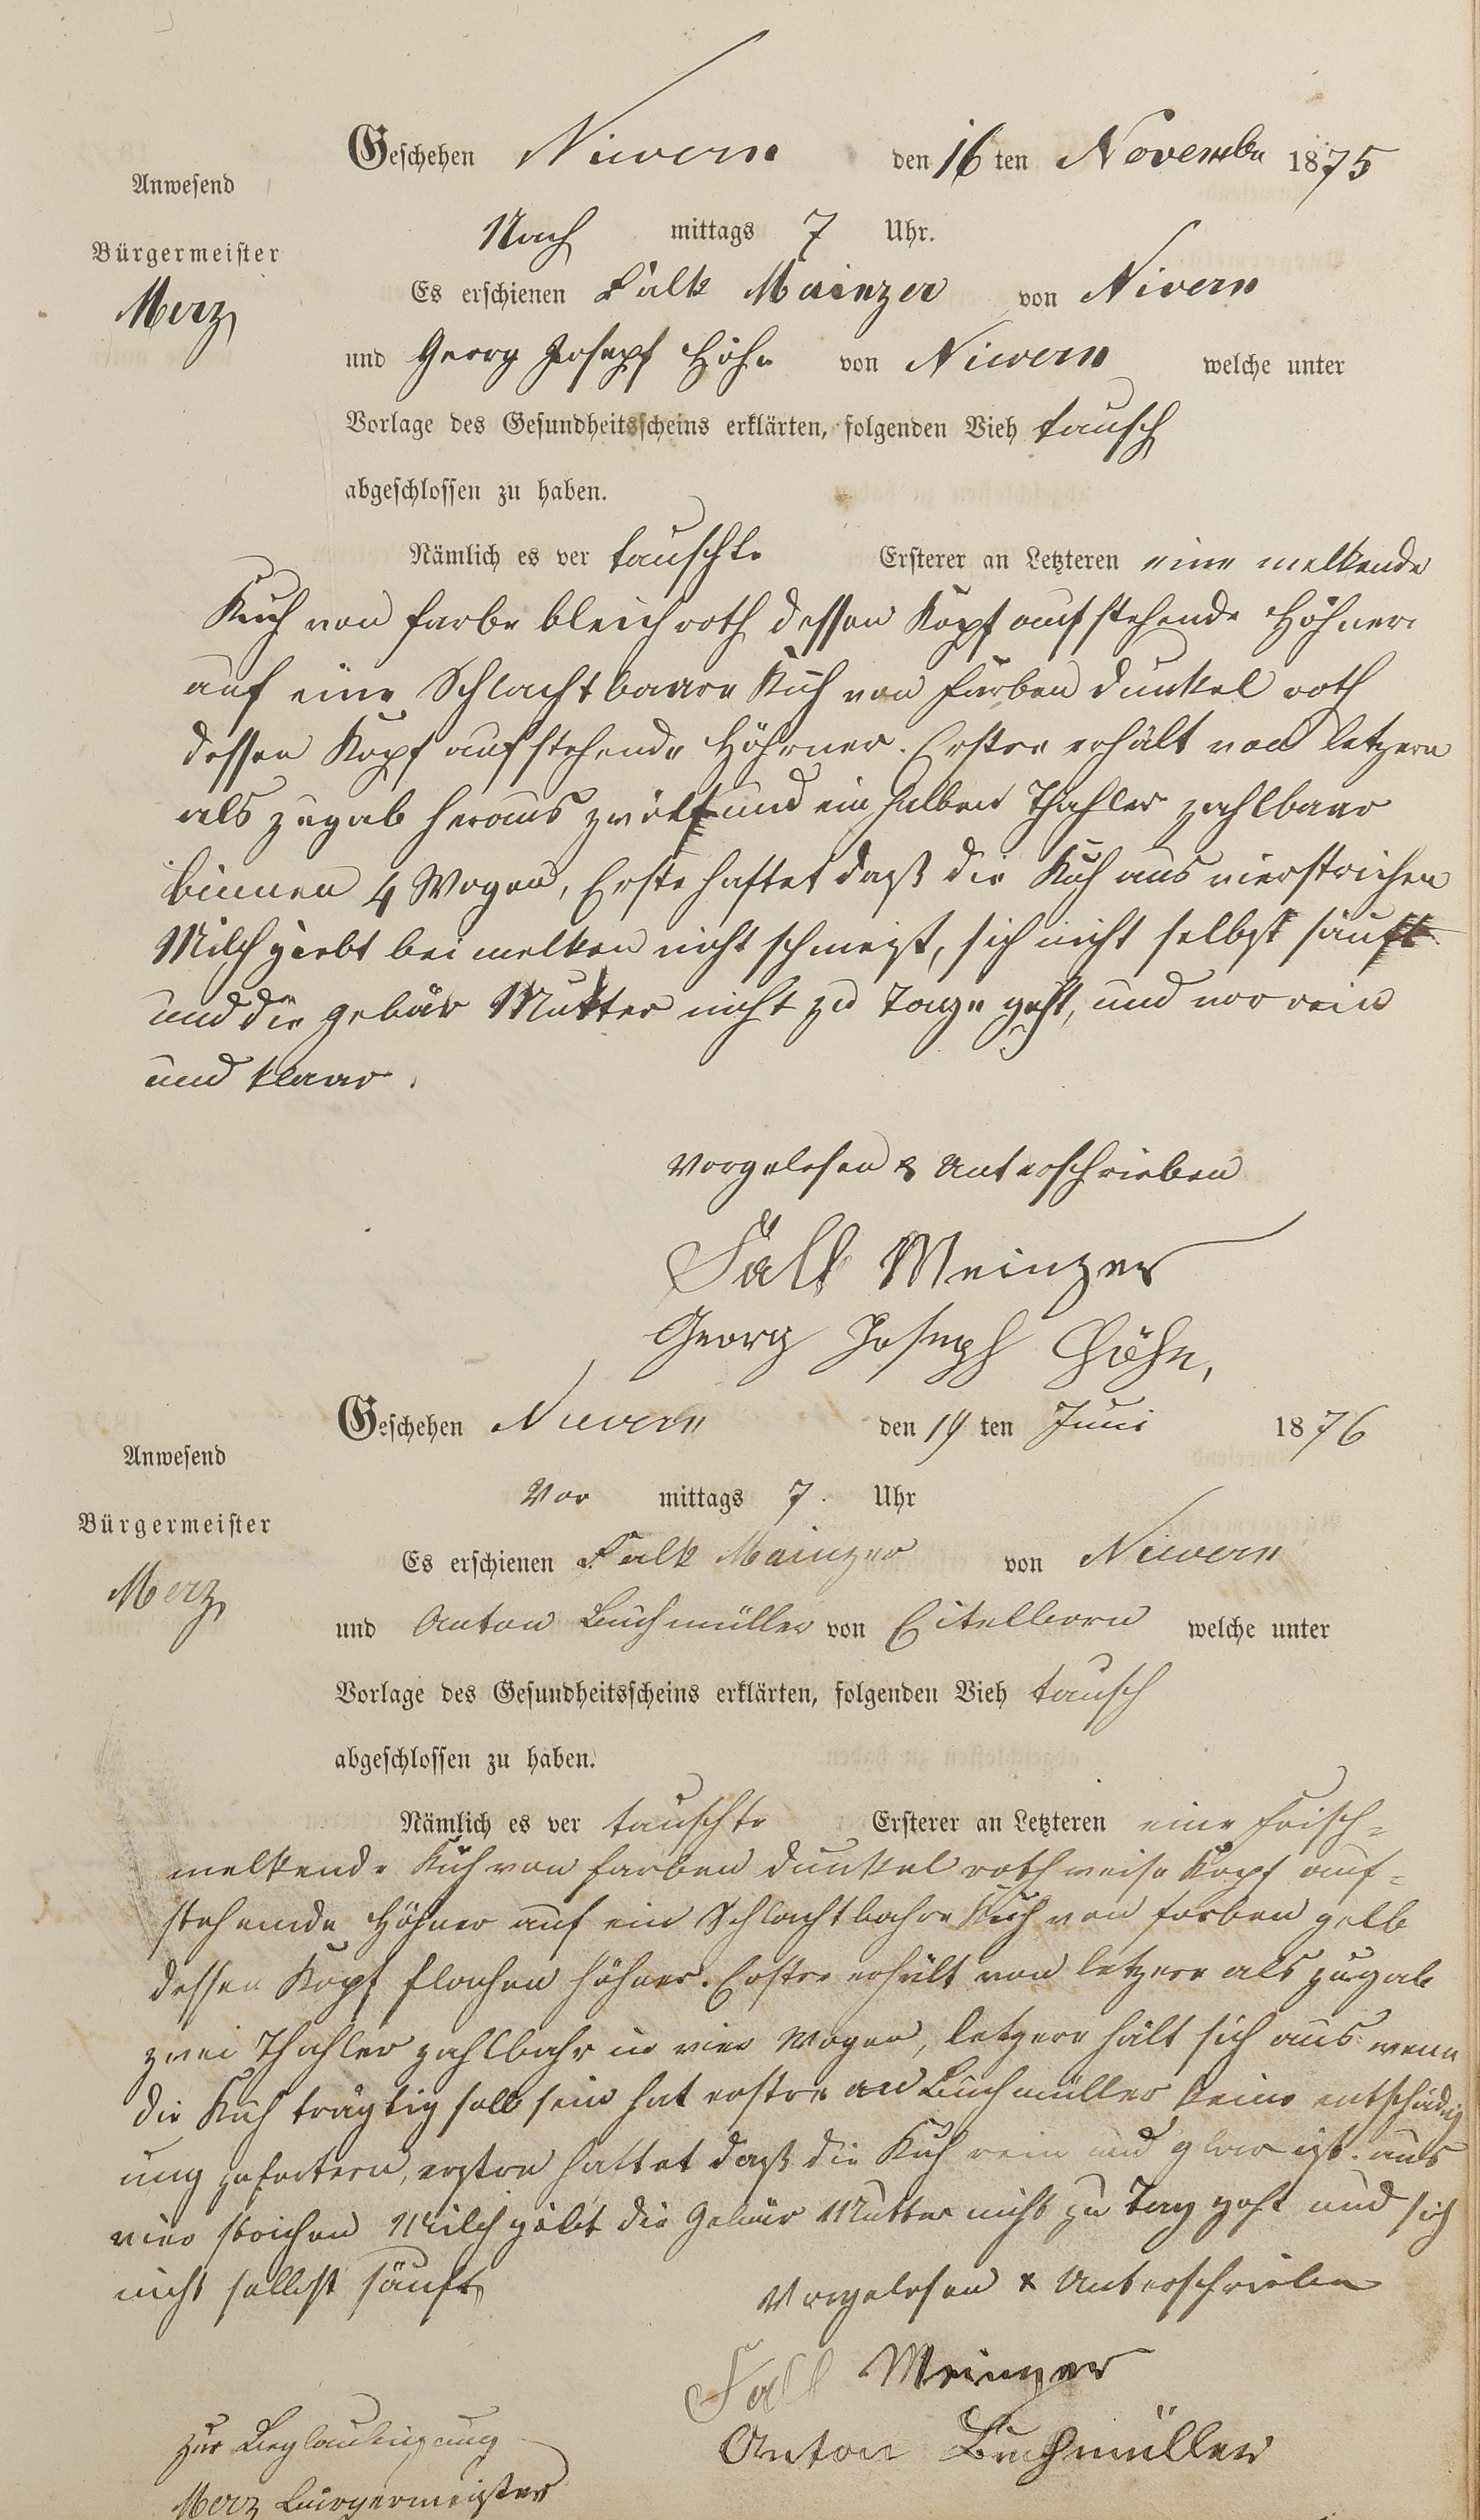 Geschehen Nievern den 16 ten November 1875
Anwesend
Nach mittags 7 Uhr.
Bürgermeister
Merz
Es erschienen Falk Mainzer von Nivern
und Georg Joseph Höhn von Nievern welche unter
Vorlage des Gesundheitsscheins erklärten, folgenden Vieh tausch
abgeschlossen zu haben.
Nämlich es ver tauschte Ersterer an Letzteren eine melkende
Kuh von farbe bleichroth dessen Kopf aufstehende Höhner
auf eine Schlachtbaare Kuh von farben dunkel roth
dessen Kopf aufstehende Höhrner. Erstre erhält von letzern
als zugab heraus zwölf und ein halben Thahler zahlbaar
binnen 4 Wogen, Erste haftet daß die Kuh aus vierstrichen
Milch giebt bei melken nicht schmeist, sich nicht selbst säuft
und die gebär Mutter nicht zu Tage geht, und vor rein
und klaar.
Vorgelesen & Unterschrieben
Falk Meinzer
Georg Joseph Höhn,
Geschehen Nievern den 19 ten Juni 1876
Anwesend
Vor mittags 7. Uhr
Bürgermeister
Merz
Es erschienen Falk Mainzer von Nievern
und Anton Buchmüller von Eitelborn welche unter
Vorlage des Gesundheitsscheins erklärten, folgenden Vieh tausch
abgeschlossen zu haben.
Nämlich es ver tauschte Ersterer an Letzteren eine frisch=
melkende Kuh von farben dunkel roth weise Kopf auf=
stehende Höhner auf ein Schlachtbahre Kuh von farben gelb
dessen Kopf flachen höhner. Erstre erhält von letzere als zugab
zwei Thahler zahlbahr in vier Wogen, letzere hält sich aus wenn
die Kuh trägtig soll sein hat erstre an Buchmüller keine entschädig
ung zu fortern, erstre haftet daß die Kuh rein und glar ist. aus
vier strichen Milch gibt die Gebär Mutter nicht zu Tag geht und sich
nicht selbst säuft
Vorgelesen & Unterschrieben
Falk Meinzer
Anton Buchmüller
Zur Beglaubigung
Merz Bürgermeister